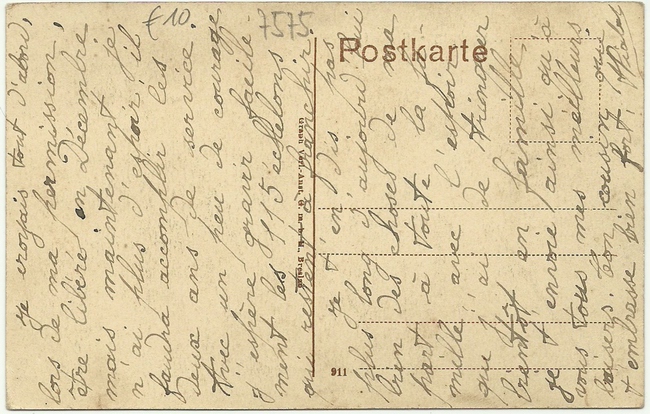 €10.
7575
Postkarte
je croyais tout d'abord,
lors de ma permission,
être libéré en Décembre
mais maintenant je
n'ai plus d'espoir, il
faudra accomplir les
Deux ans de service.
Avec un peu de courage
j'espère gravir facile
ment les 115 échelons
qui restent à franchir.
Graph. Verl.-Anst. G. m. b. H. Breslau
911
je t'en dis pas
plus long aujourd'hui
bien des choses de ma
part à toute la fa
mille avec l'espoir
que j'ai de trinquer
bientôt en famille
je t'envoie ainsi qu'à
vous tous mes meilleurs
baisers. ton cousin qui
t'embrasse bien fort